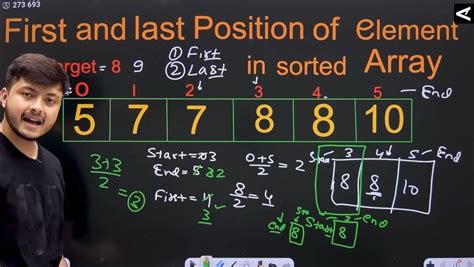 273 693
First and last Position of element
in sorted Array
target = 8 9
① First
② Last
0 1 2 3 4 5 End
5 7 7 8 8 10
3+3/2 = 3
Start = 0 3
End = 5 3 2
0+5/2 = 2
First = 4 3
8/2 = 4
3 4 5 End
8 8 10
End Start End
8 8